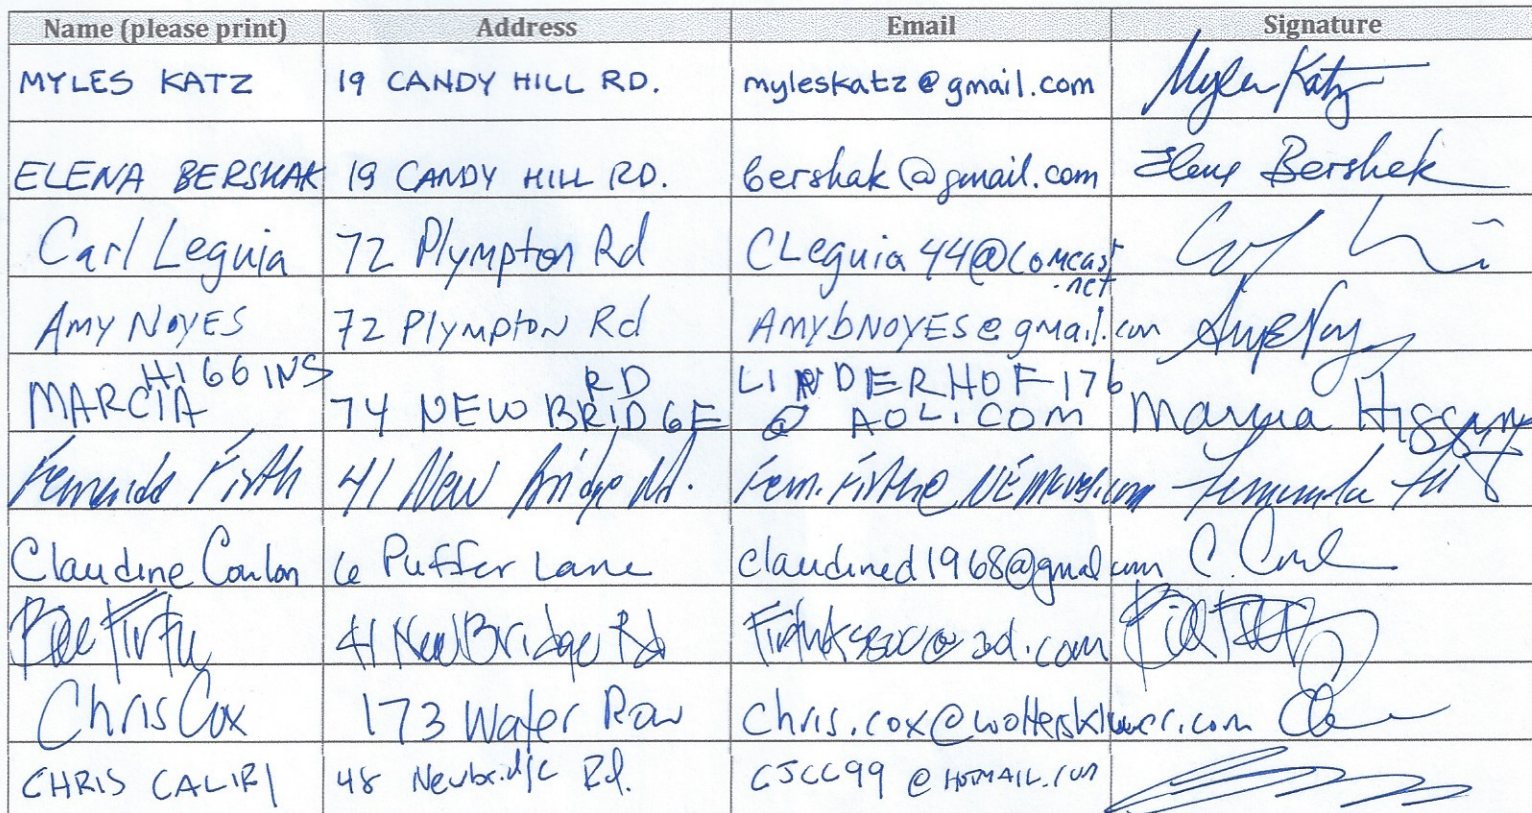 Name (please print) Address Email Signature
MYLES KATZ 19 CANDY HILL RD. myleskatz@gmail.com Myles Katz
ELENA BERSHAK 19 CANDY HILL RD. bershak@gmail.com Elena Bershak
Carl Leguia 72 Plympton Rd CLeguia44@comcast.net
AMY NOYES 72 Plympton Rd AMYbNOYES@gmail.com
MARCIA HIGGINS 74 NEW BRIDGE RD LINDERHOF176@AOL.COM Marcia Higgins
Fernanda Firth 41 New Bridge Rd. Fernanda
Claudine Conlon 6 Puffer Lane claudined1968@gmail.com C.
Firth 41 New Bridge Rd
Chris Cox 173 Water Row Chris.cox@wolterskluwer.com
CHRIS CALIRI 48 Newbridge Rd. CJCC99@HOTMAIL.COM